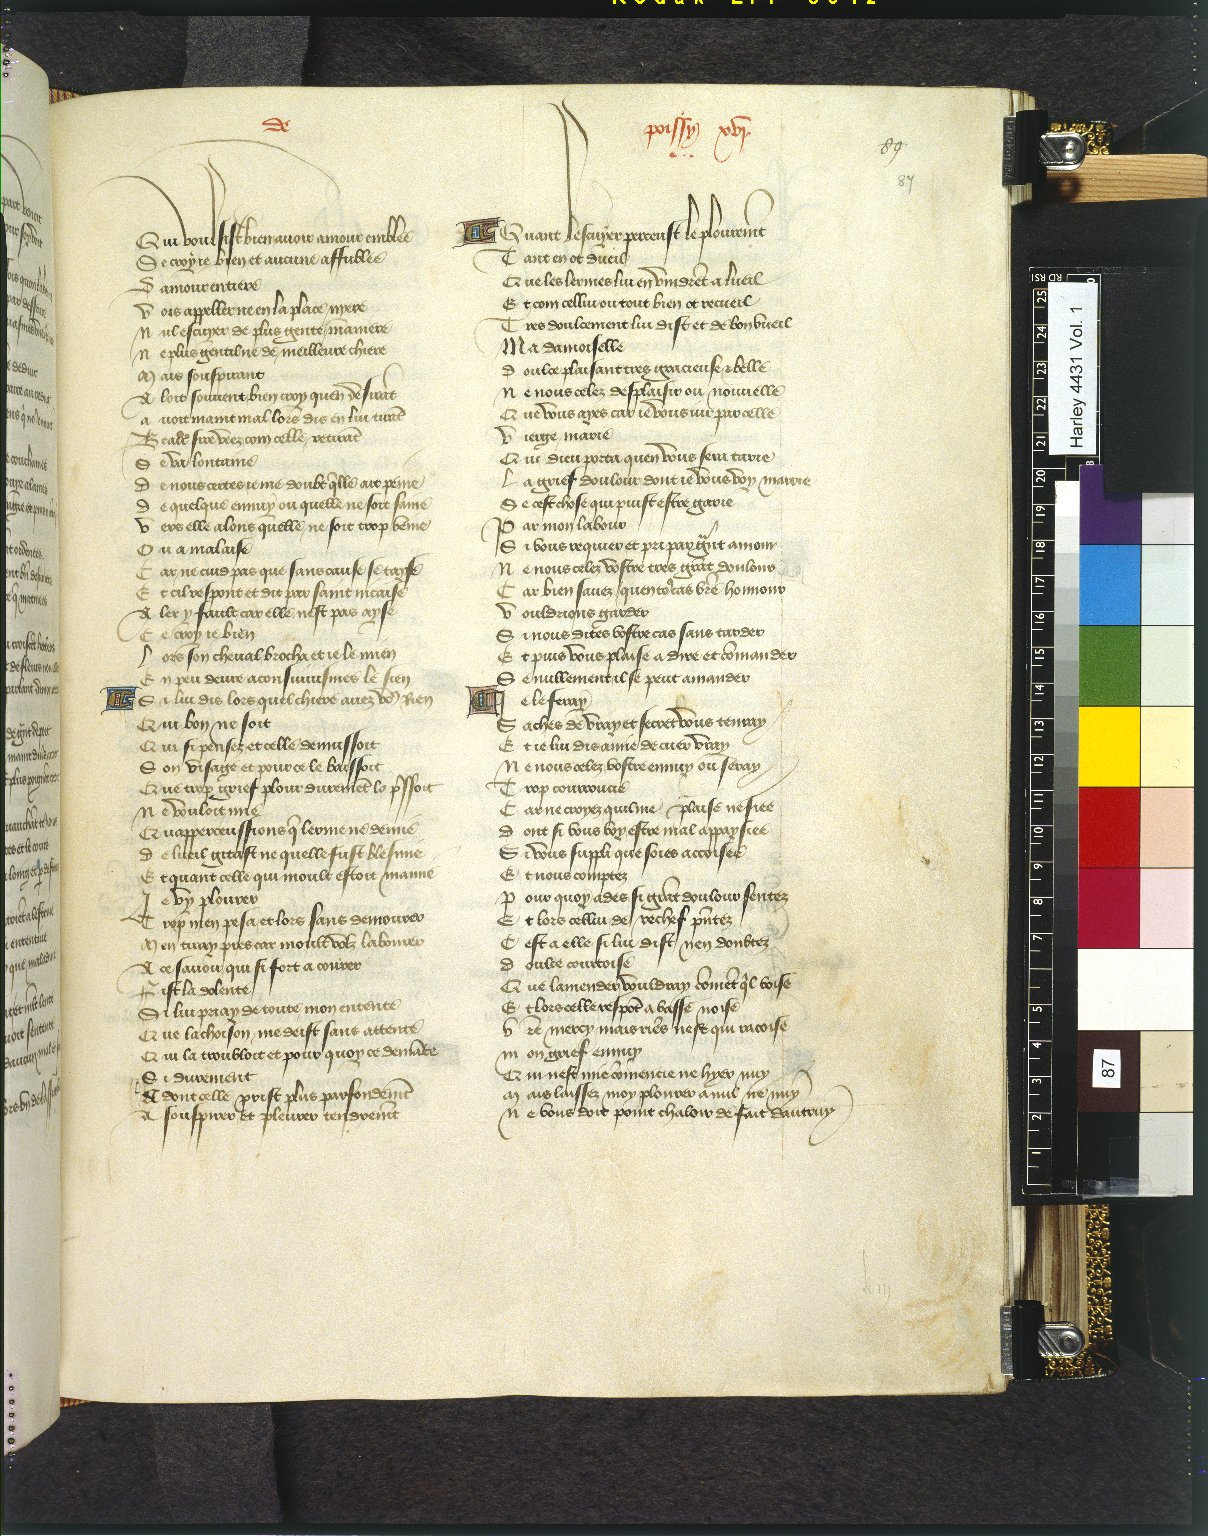 de
poissy xvi.
89
87
Qui voulsist bien avoir amour emblee
Se croy ie bien et aucune affublee
Damour entiere
Vois appeller ne en la place nyere
Nul escuyer de plus gente maniere
Ne plus gentil ne de meilleure chiere
Mais souspirant
A loit souvent bien croy quen desirāt
avoit maint mal lors dis en lui tirāt
Beau sire veez com celle retirāt
Se va lontaine
de nous certes ie me doubt qlle ait peine
de quelque ennuy ou quelle ne soit saine
Vers elle alons quelle ne soit trop beine
Ou a malaise
Car ne cuid pas que sans cause se taise
Et cil respont et dit par saint nicaise
Aler y fault car elle nest pas ayse
Ce croy ie bien
Lors son cheval brocha et ie le mien
En peu deure aconsuivismes le sien
Si lui dis lors quel chiere avez vo9 Rien
Qui bon ne soit
Qui si pensez et celle denussoit
Son visage et pour ce le baissoit
Que trop grief plour durement lo pssoit
Ne vouloit mie
Quapperceussions q lerme ne demie
de lueil gitast ne quelle fust blesmie
Et quant celle qui moult estoit mamie
Ie vy plourer
Trop men pesa et lors sans demourer
Men tiray pres car moult voz labourer
A ce savoir qui si fort acourer
Fist la dolente
Si lui priay de toute mon entente
Que lachoison me deist sans attente
Qui la troubloit et pour quoy ce demāte
Si durement
Adont celle prist plus parfondemēt
A souspirer et pleurer tendremēt
Quant lescuyer perceust le plouremēt
Tant en ot dueil
Que les lermes lui en vindrēt a lueil
Et com cellui ou tout bien ot recueil
Tres doulcement lui dist et de bon vueil
Ma damoiselle
doulce plaisant tres gracieuse & belle
ne nous celez desplaisir ou nouvelle
Que vous ayes car ie vous iur par celle
Vierge marie
Qui dieu porta quen vous sera tarie
La grief doulour dont ie vous voy marrie
Se cest chose qui puist estre garie
Par mon labour
Si vous requier et pri par grāt amour
Ne nous celez vostre tres grāt doulour
Car bien savez quen to9 cas vrē honnour
Vouldrions garder
Si nous dites vostre cas sans tarder
Et puis vous plaise a dire et cōmander
Se nullement il se peut amander
Ie le feray
Saches de vray et secret vous tenray
Et ie lui dis amie de cuer vray
Ne nous celez vostre ennuy ou seray
Trop courroucie
Car ne croyez quil me plaise ne siee
dont si vous voy estre mal appaysiee
Si vous suppli que soies accoisee
Et nous comptez
Pour quoy ades si grāt doulour sentez
Et lors cellui de rechef pntez
Cest a elle si lui dist nen doubtez
doulce courtoise
Que lamender vouldray comēt ql voise
Et lors celle respōt a basse noise
Vrē mercy mais riēs nest qui racoise
mon grief ennuy
Qui nest mie cōmencie ne hyer nuy
Mais laissez moy plourer a nul ne nuy
Ne vous doit point chaloir de fait dautruy
Harley 4431 Vol. 1
87